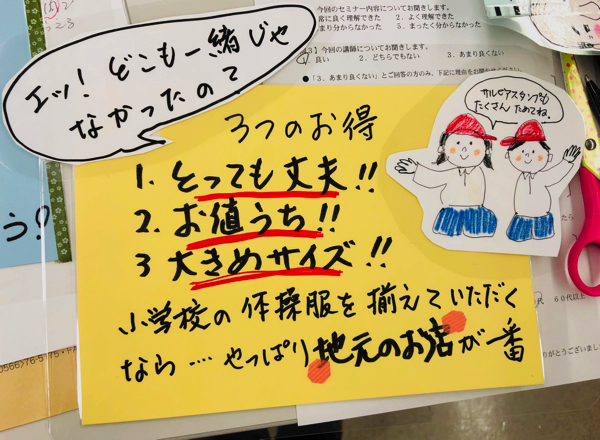 エッ! どこも一緒じゃ
なかったの?
3つのお得
1. とっても丈夫!!
2. お値うち!!
3 大きめサイズ!!
小学校の体操服を揃えていただく
なら…. やっぱり地元のお店が一番
サルビアスタンプも
たくさんためてね。
今回のセミナー内容についてお聞きします。
常に良く理解できた 2. よく理解できた
まり分からなかった 5. まったく分からなかった
【3】今回の講師についてお聞きします。
良い 2. どちらでもない 3. あまり良くない
●「3. あまり良くない」とご回答の方のみ、下記に理由を
う?
(0566)76-5175
60代以上
りがとうございまし